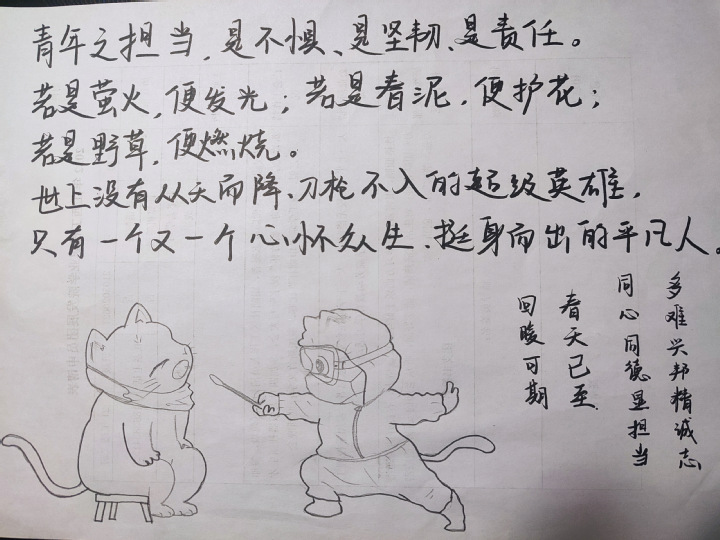 青年之担当，是不惧、是坚韧、是责任。
若是萤火，便发光；若是春泥，便护花；
若是野草，便燃烧。
世上没有从天而降、刀枪不入的超级英雄，
只有一个又一个心怀众生、挺身而出的平凡人。
多难兴邦精诚志
同心同德显担当
春天已至
回暖可期